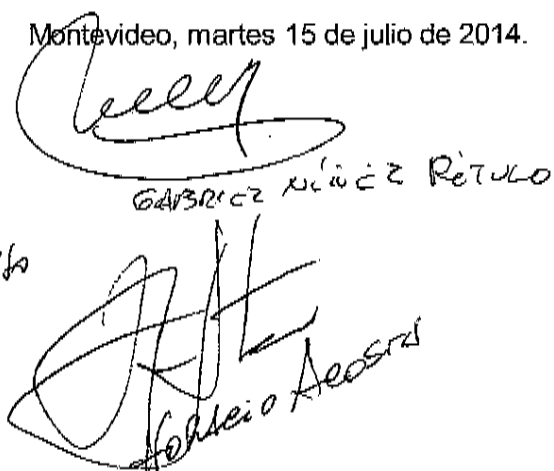 Montevideo, martes 15 de julio de 2014.
GABRIEL NÚÑEZ RÉTULO
Horacio Acosta